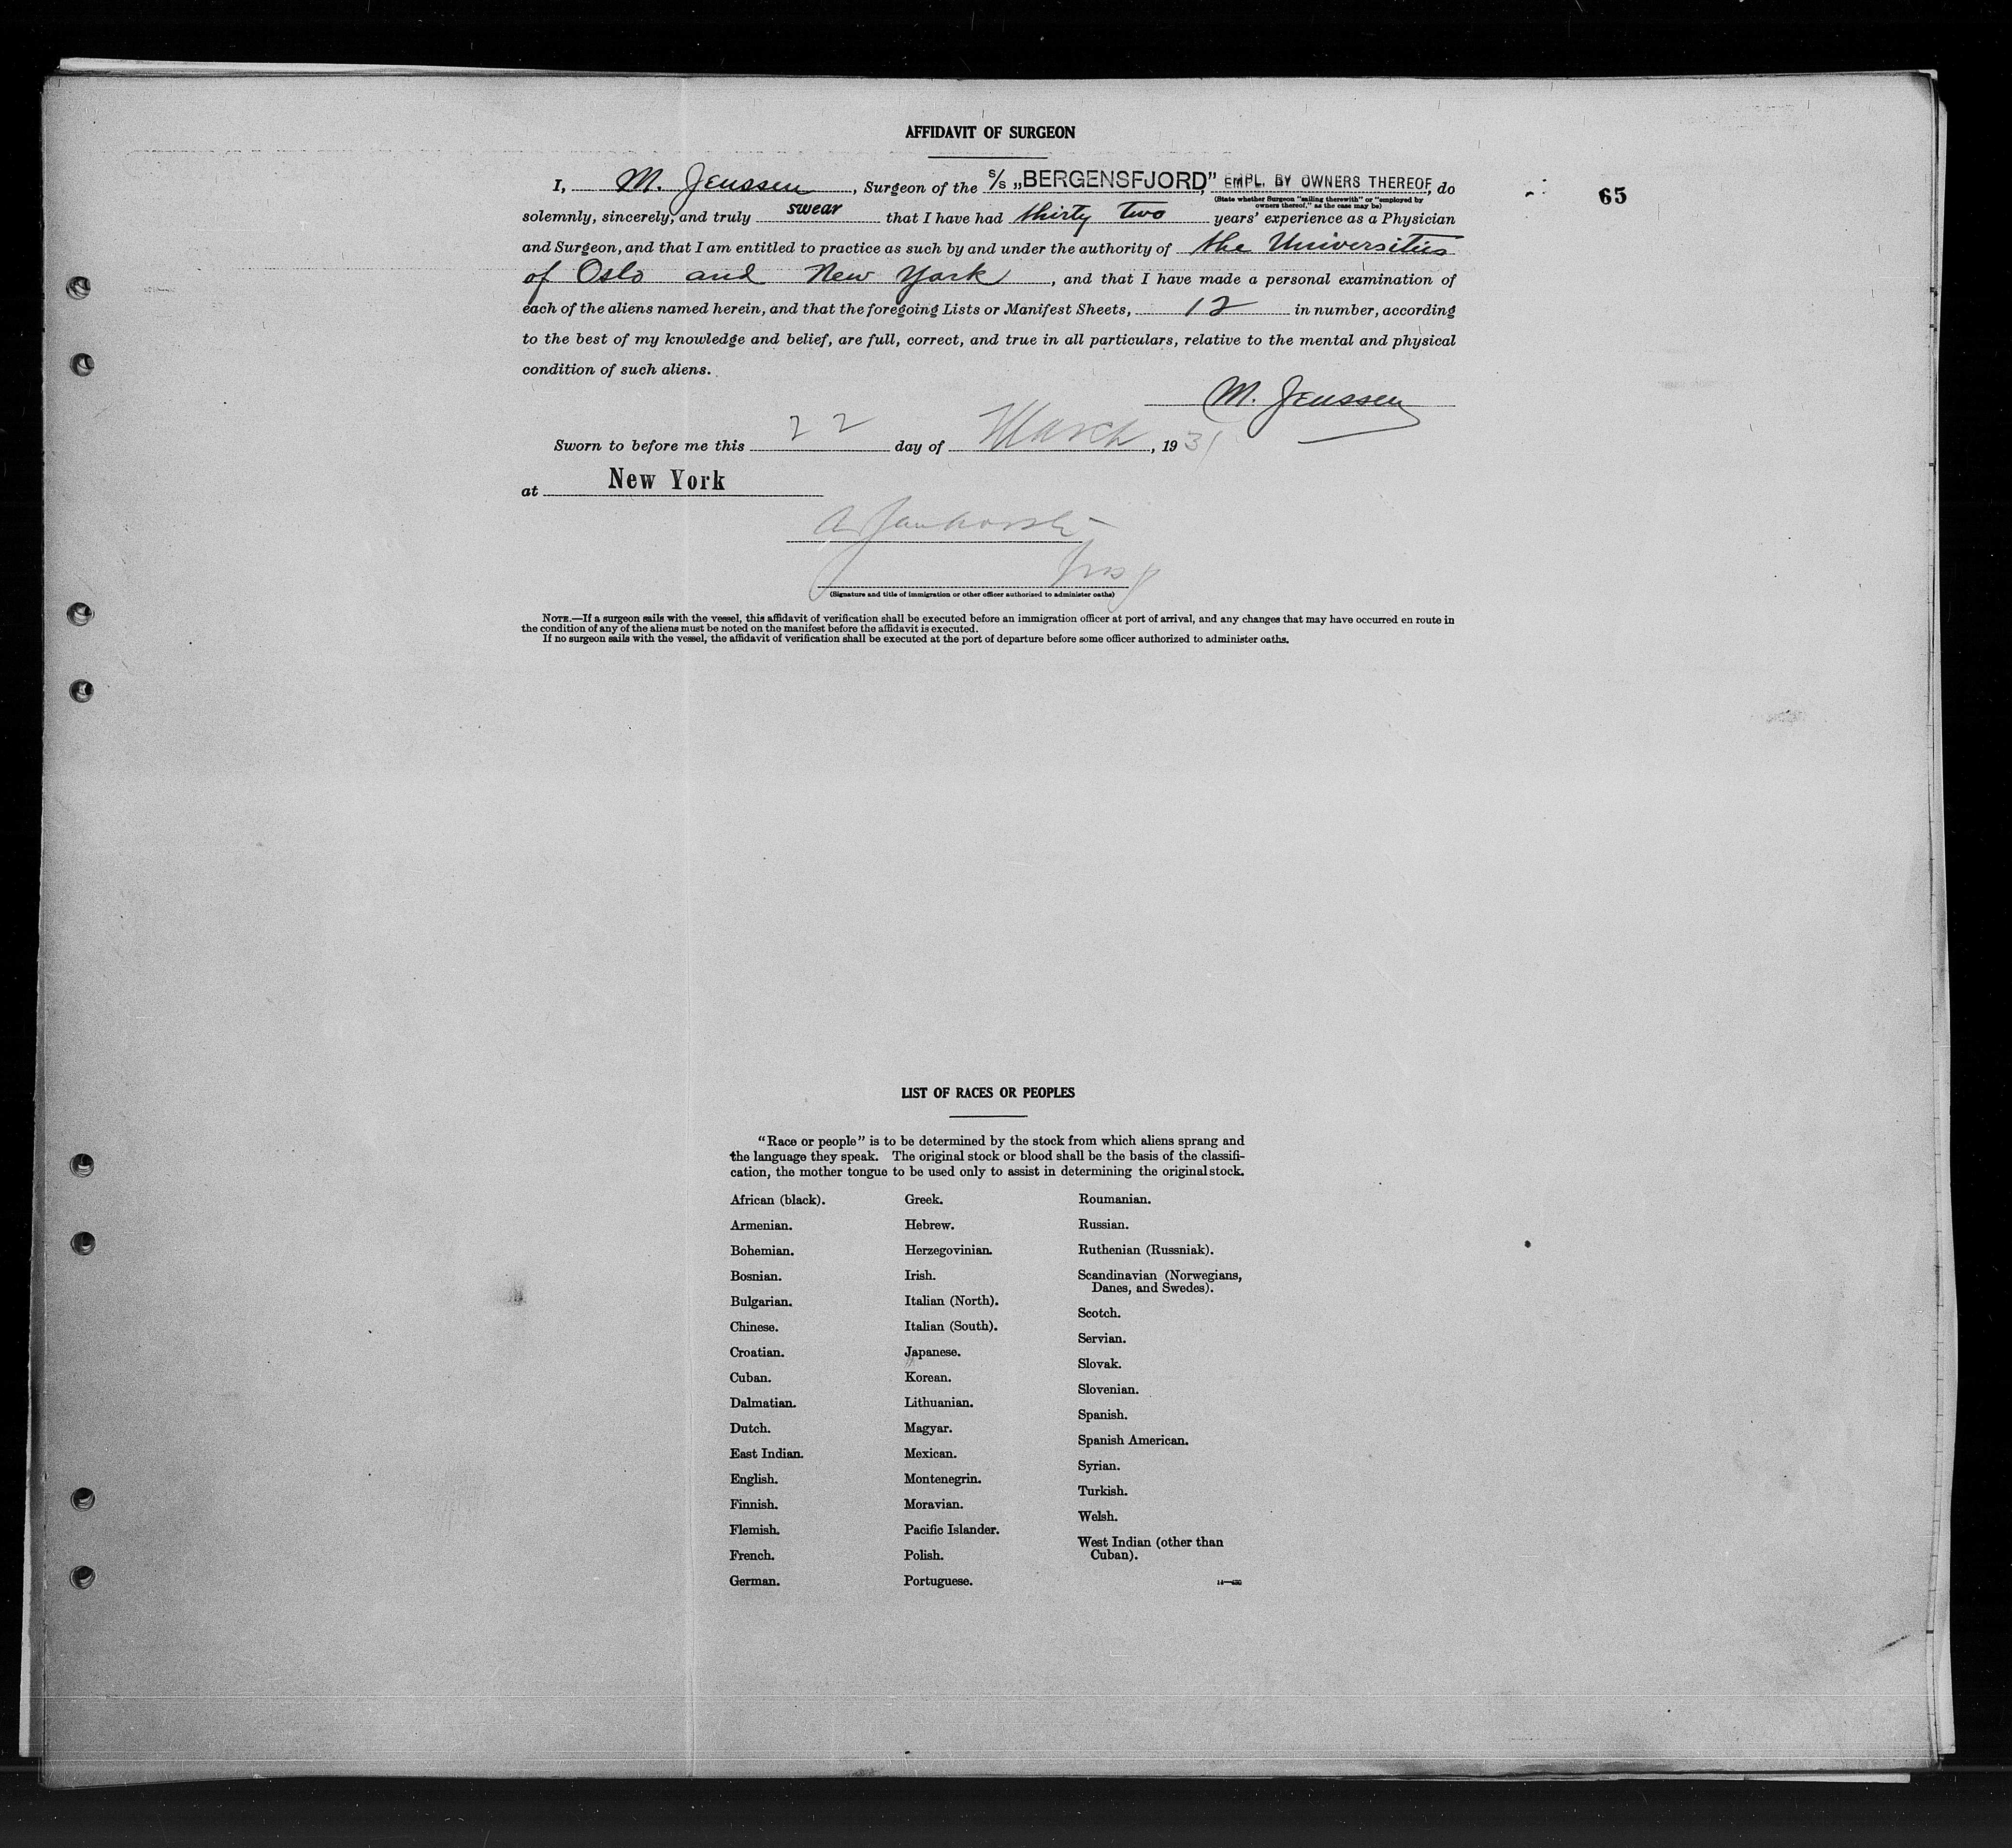 AFFIDAVIT OF SURGEON
65
I, M. Jenssen, Surgeon of the S/S „BERGENSFJORD," EMPL. BY OWNERS THEREOF, do
(State whether Surgeon "sailing therewith" or "employed by
owners thereof," as the case may be)
solemnly, sincerely, and truly swear that I have had thirty two years' experience as a Physician
and Surgeon, and that I am entitled to practice as such by and under the authority of the Universities
of Oslo and New York, and that I have made a personal examination of
each of the aliens named herein, and that the foregoing Lists or Manifest Sheets, 12 in number, according
to the best of my knowledge and belief, are full, correct, and true in all particulars, relative to the mental and physical
condition of such aliens.
M. Jenssen
Sworn to before me this 22 day of March, 1931
at New York
(Signature and title of immigration or other officer authorized to administer oaths)
NOTE.—If a surgeon sails with the vessel, this affidavit of verification shall be executed before an immigration officer at port of arrival, and any changes that may have occurred en route in
the condition of any of the aliens must be noted on the manifest before the affidavit is executed.
If no surgeon sails with the vessel, the affidavit of verification shall be executed at the port of departure before some officer authorized to administer oaths.
LIST OF RACES OR PEOPLES
"Race or people" is to be determined by the stock from which aliens sprang and
the language they speak. The original stock or blood shall be the basis of the classifi-
cation, the mother tongue to be used only to assist in determining the original stock.
African (black).
Armenian.
Bohemian.
Bosnian.
Bulgarian.
Chinese.
Croatian.
Cuban.
Dalmatian.
Dutch.
East Indian.
English.
Finnish.
Flemish.
French.
German.
Greek.
Hebrew.
Herzegovinian.
Irish.
Italian (North).
Italian (South).
Japanese.
Korean.
Lithuanian.
Magyar.
Mexican.
Montenegrin.
Moravian.
Pacific Islander.
Polish.
Portuguese.
Roumanian.
Russian.
Ruthenian (Russniak).
Scandinavian (Norwegians,
Danes, and Swedes).
Scotch.
Servian.
Slovak.
Slovenian.
Spanish.
Spanish American.
Syrian.
Turkish.
Welsh.
West Indian (other than
Cuban).